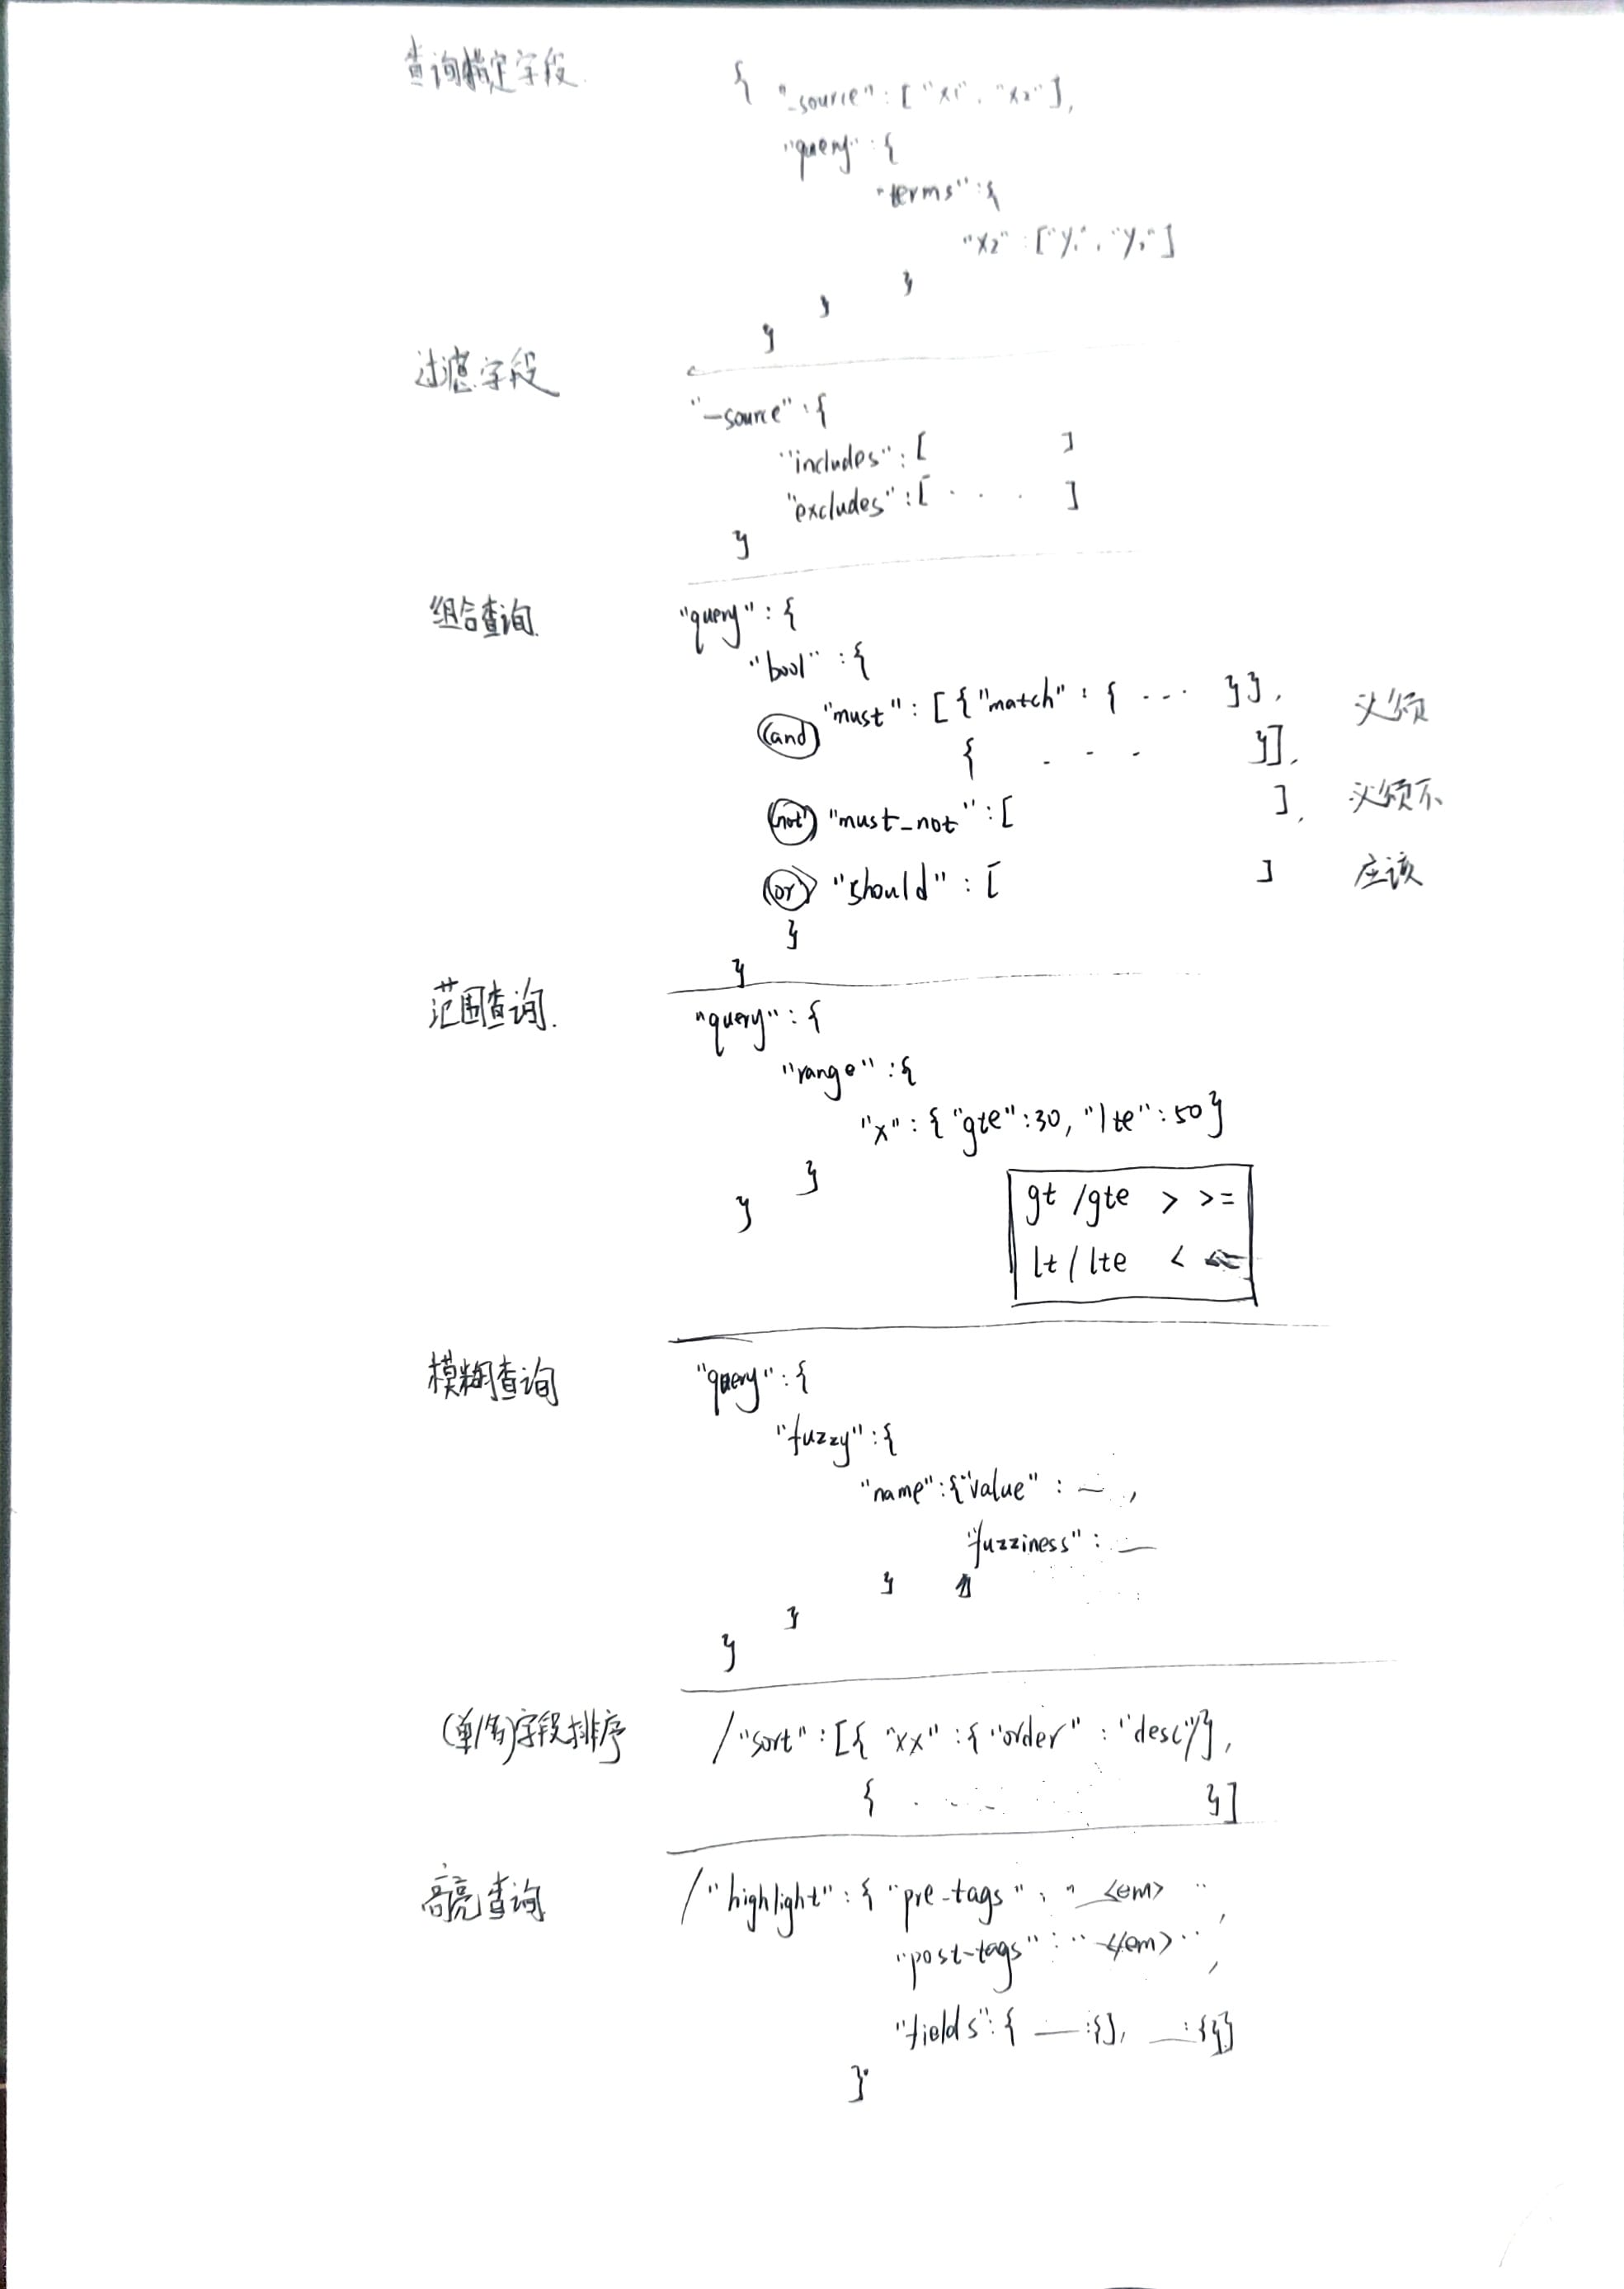 查询指定字段 { "_source" : [ "x1", "x2" ],
"query" : {
"terms" : {
"x2" : [ "y1", "y2" ]
}
}
}
过滤字段
"_source" : {
"includes" : [ ]
"excludes" : [ . . . . ]
}
组合查询 "query" : {
"bool" : {
"must" : [ { "match" : { --- } }, 必须
(and) { . - - } ],
(not) "must_not" : [ ], 必须不
(or) "should" : [ ] 应该
}
}
范围查询. "query" : {
"range" : {
"x" : { "gte" : 30, "lte" : 50 }
}
}
gt / gte > >=
lt / lte < <=
模糊查询 "query" : {
"fuzzy" : {
"name" : { "value" : — ,
"fuzziness" : —
}
}
}
(单/多)字段排序 / "sort" : [ { "xx" : { "order" : "desc" } },
{ . - - - } ]
高亮查询 / "highlight" : { "pre-tags" : " <em> ",
"post-tags" : " </em> ",
"fields" : { — : {}, — : {} }
}